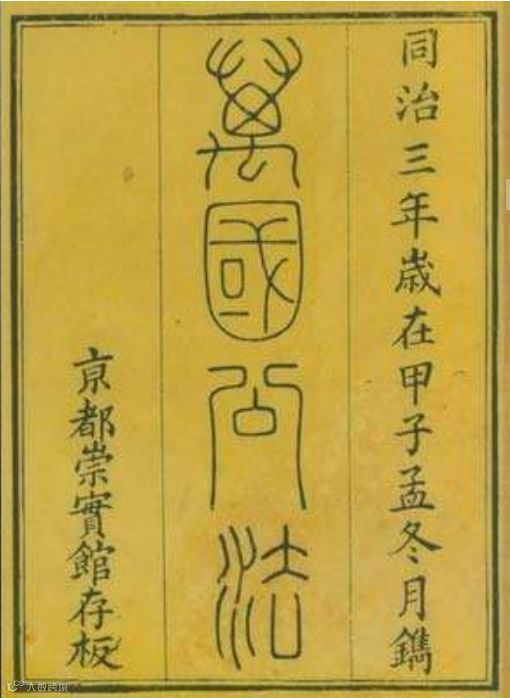 同治三年歲在甲子孟冬月鐫
萬國公法
京都崇實館存板
大数跨境